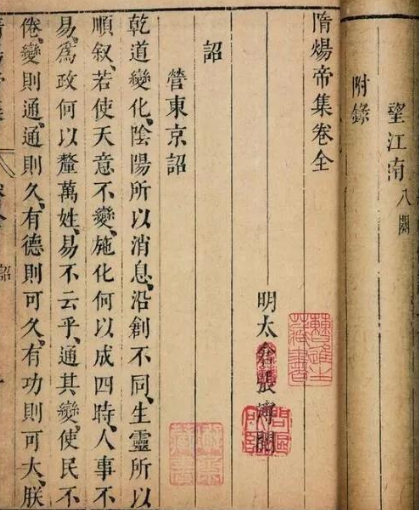 望江南八闋
附錄
隋煬帝集卷全
明太倉張溥閱
詔
營東京詔
乾道變化、陰陽所以消息、沿創不同、生靈所以
順叙、若使天意不變、施化何以成四時、人事不
易、爲政何以釐萬姓、易不云乎、通其變、使民不
倦、變則通、通則久、有德則可久、有功則可大、朕